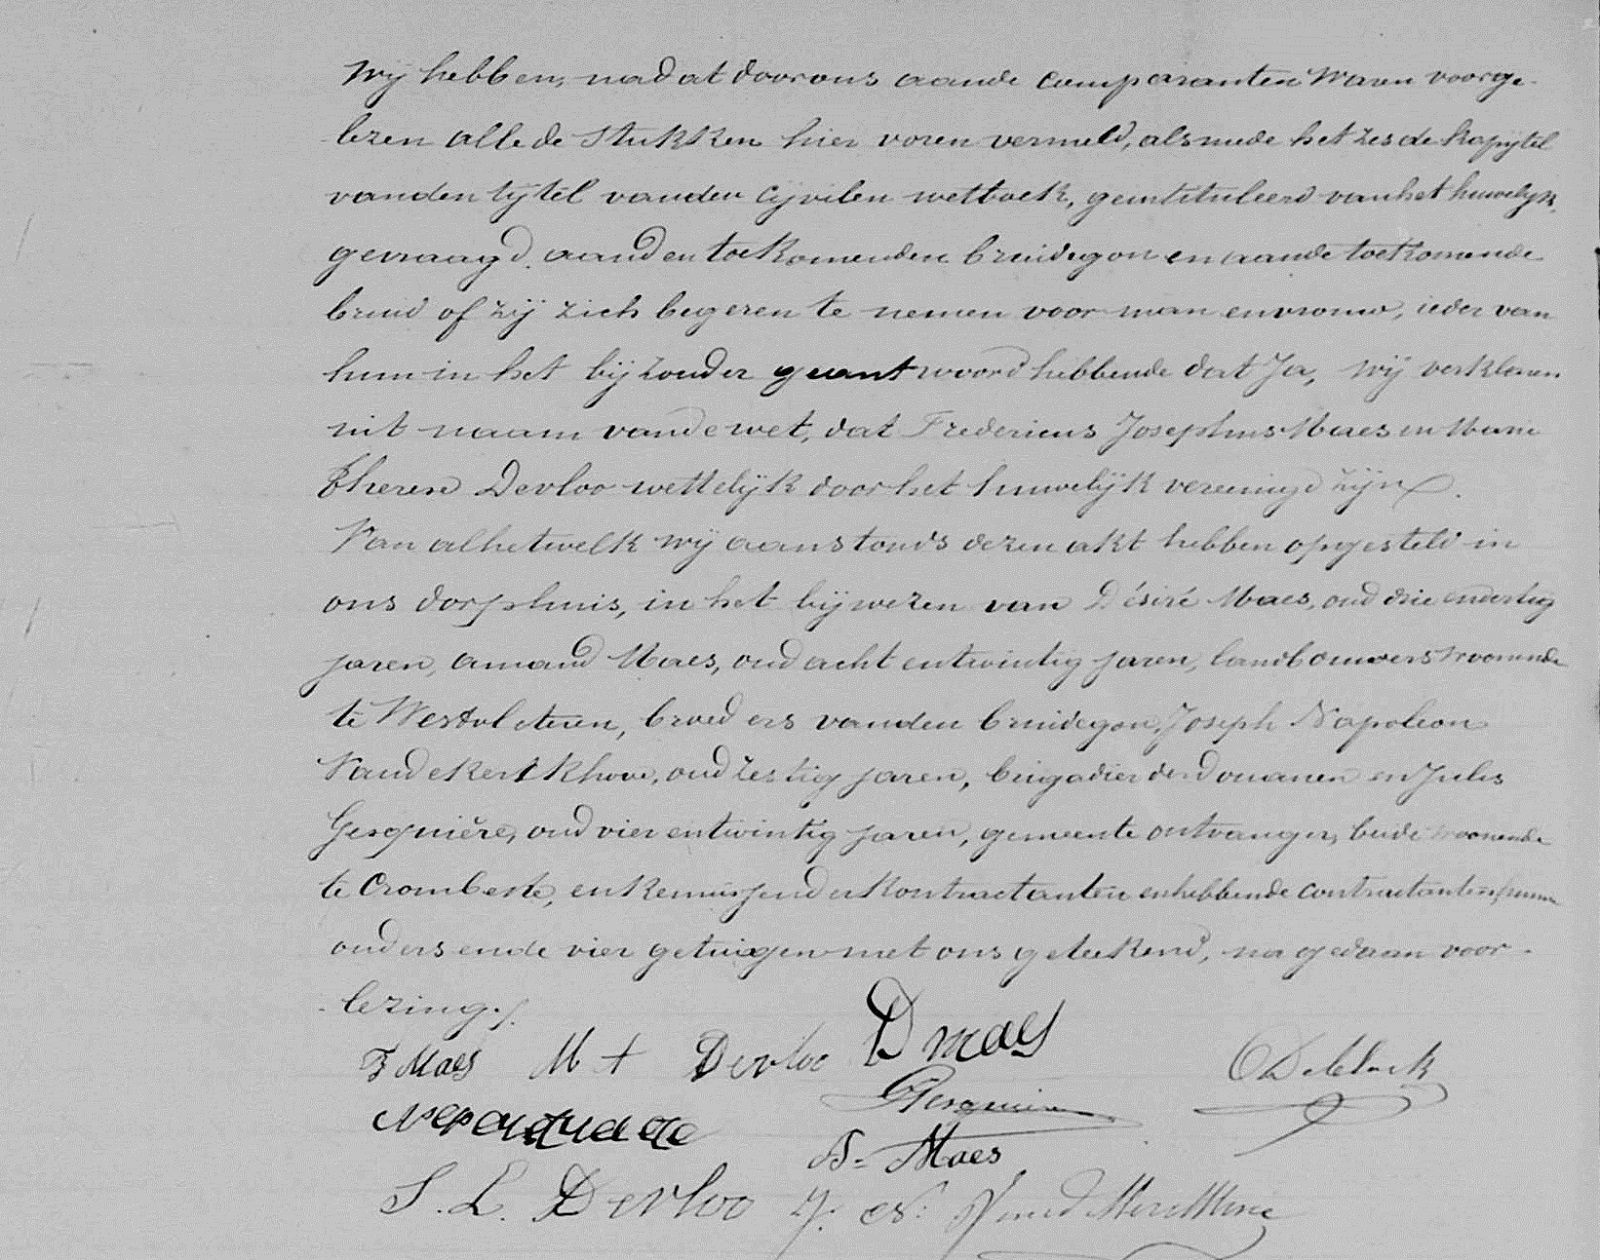 Wij hebben, nadat door ons aan de comparanten waren voorge-
lezen alle de stukken hier voren vermeld, alsmede het zesde kapijtel
van den tijtel van den cijvilen wetboek, geintituleerd van het huwelijk,
gevraagd aan den toekomenden bruidegom en aan de toekomende
bruid of zij zich begeren te nemen voor man en vrouw, ieder van
hun in het bijzonder geantwoord hebbende dat Ja, wij verklaren
uit naam van de wet, dat Fredericus Josephus Maes en Marie
Therese Devloo wettelijk door het huwelijk vereenigd zijn.
Van al hetwelk wij aanstonds dezen akt hebben opgesteld in
ons dorphuis, in het bijwezen van Désiré Maes, oud drie en dertig
jaren, Amand Maes, oud acht en twintig jaren, landbouwers woonende
te Westvleteren, broeders van den bruidegom, Joseph Napoleon
Vandekerkhove, oud zestig jaren, brigadier der douanen en Jules
Gesquière, oud vier en twintig jaren, gemeente ontvanger, beide woonende
te Crombeke, en kennissen der kontractanten en hebbende contractanten,
ouders en de vier getuigen met ons geteekend, na gedaan voor-
lezing./.
F Maes M t Devloo D maes
O Deblock
Gesquiere
A= Maes
S. L. Devloo J: N: